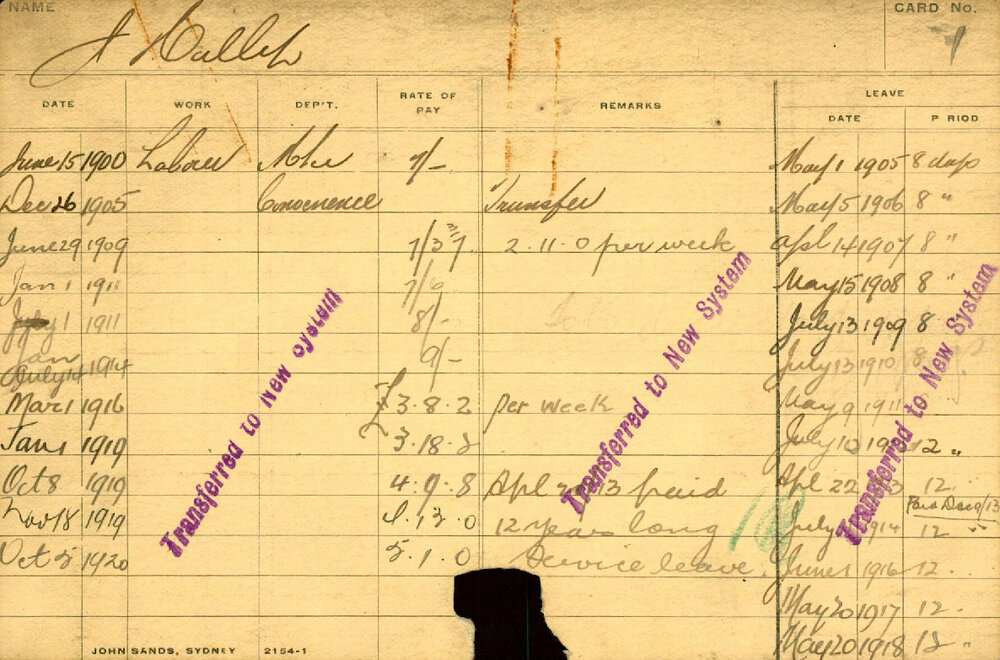 NAME
CARD No.
1
J
DATE WORK DEP'T. RATE OF PAY REMARKS LEAVE
DATE P RIOD
June 15 1900 Laborer 7/- May 1 1905 8 days
Dec 26 1905 Convenience Transfer May 5 1906 8 "
June 29 1909 2. 11. 0 per week Apl 14 1907 8 "
Jan 1 1911 7/6 May 15 1908 8 "
July 1 1911 8/- July 13 1909 8
Jan 9/- July 13 1910 8
July 14 1914
Mar 1 1916 £3. 8. 2 per week May 9 1911
Jan 1 1919 3. 18. 2 July 12 "
Oct 8 1919 4. 9. 8 Apl 13 paid Apl 22 12
Nov 18 1919 4. 13. 0 12 years long July 1914 12 "
Oct 5 1920 5. 1. 0 Service leave. June 1 1916 12.
May 20 1917 12.
May 20 1918 12 "
Transferred to New System
Transferred to New System
Transferred to New System
JOHN SANDS, SYDNEY 2154-1